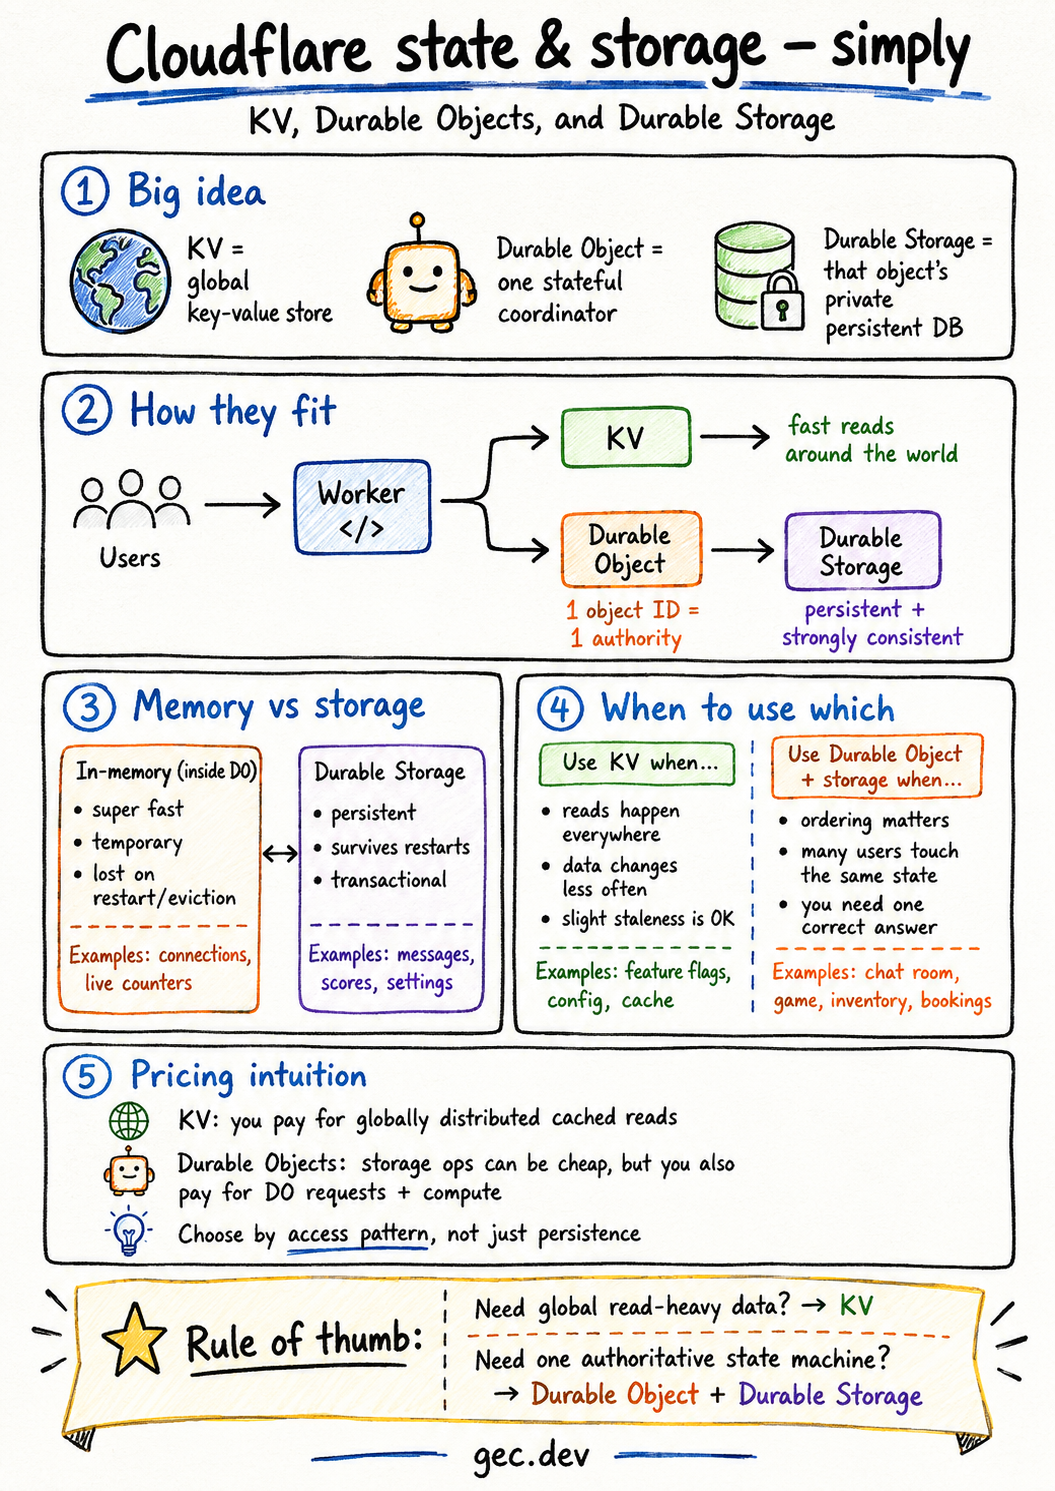 Cloudflare state & storage – simply
KV, Durable Objects, and Durable Storage
1 Big idea
KV =
global
key-value store
Durable Object =
one stateful
coordinator
Durable Storage =
that object's
private
persistent DB
2 How they fit
Users
Worker
</>
KV
fast reads
around the world
Durable
Object
1 object ID =
1 authority
Durable
Storage
persistent +
strongly consistent
3 Memory vs storage
In-memory (inside DO)
• super fast
• temporary
• lost on
restart/eviction
Examples: connections,
live counters
Durable Storage
• persistent
• survives restarts
• transactional
Examples: messages,
scores, settings
4 When to use which
Use KV when...
• reads happen
everywhere
• data changes
less often
• slight staleness is OK
Examples: feature flags,
config, cache
Use Durable Object
+ storage when...
• ordering matters
• many users touch
the same state
• you need one
correct answer
Examples: chat room,
game, inventory, bookings
5 Pricing intuition
KV: you pay for globally distributed cached reads
Durable Objects: storage ops can be cheap, but you also
pay for DO requests + compute
Choose by access pattern, not just persistence
Rule of thumb:
Need global read-heavy data? → KV
Need one authoritative state machine?
→ Durable Object + Durable Storage
gec.dev